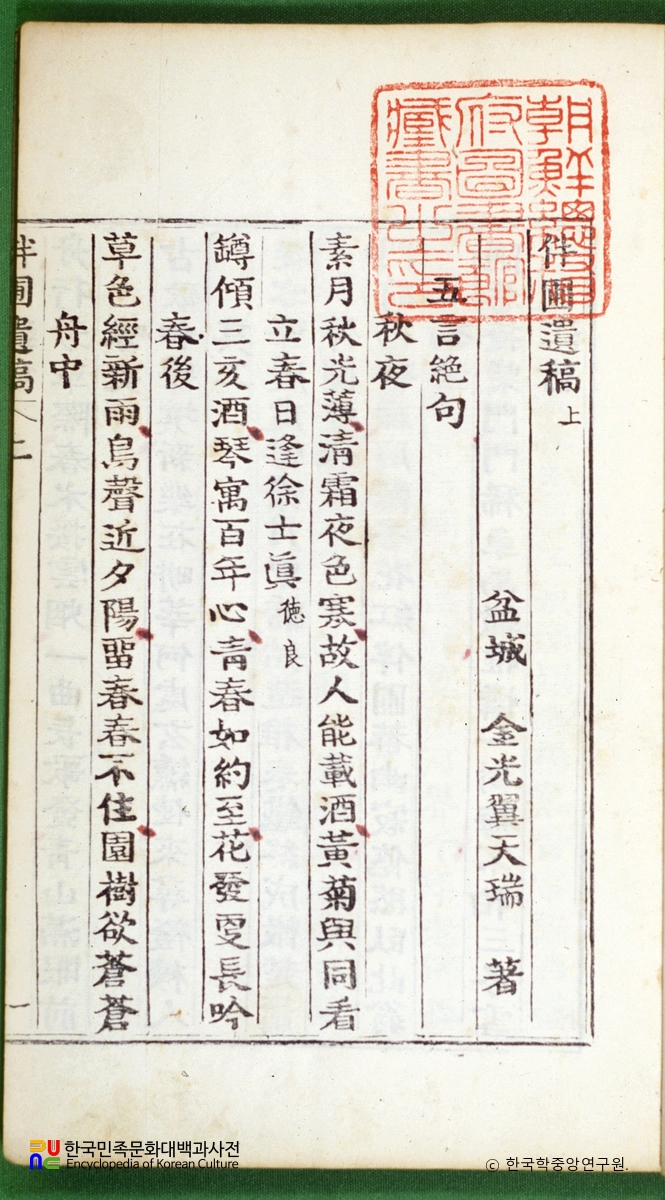 伴圃遺稿上
盆城 金光翼大瑞 著
五言絶句
秋夜
素月秋光薄清霜夜色寒故人能載酒黃菊與同看
立春日逢徐士眞德良
鐏傾三亥酒琴寓百年心青春如約至花發更長吟
春後
草色經新雨鳥聲近夕陽留春春不住園樹欲蒼蒼
舟中
伴圃遺稿 上 一
朝鮮總督
府圖書館
藏書之印
한국민족문화대백과사전
Encyclopedia of Korean Culture
© 한국학중앙연구원.